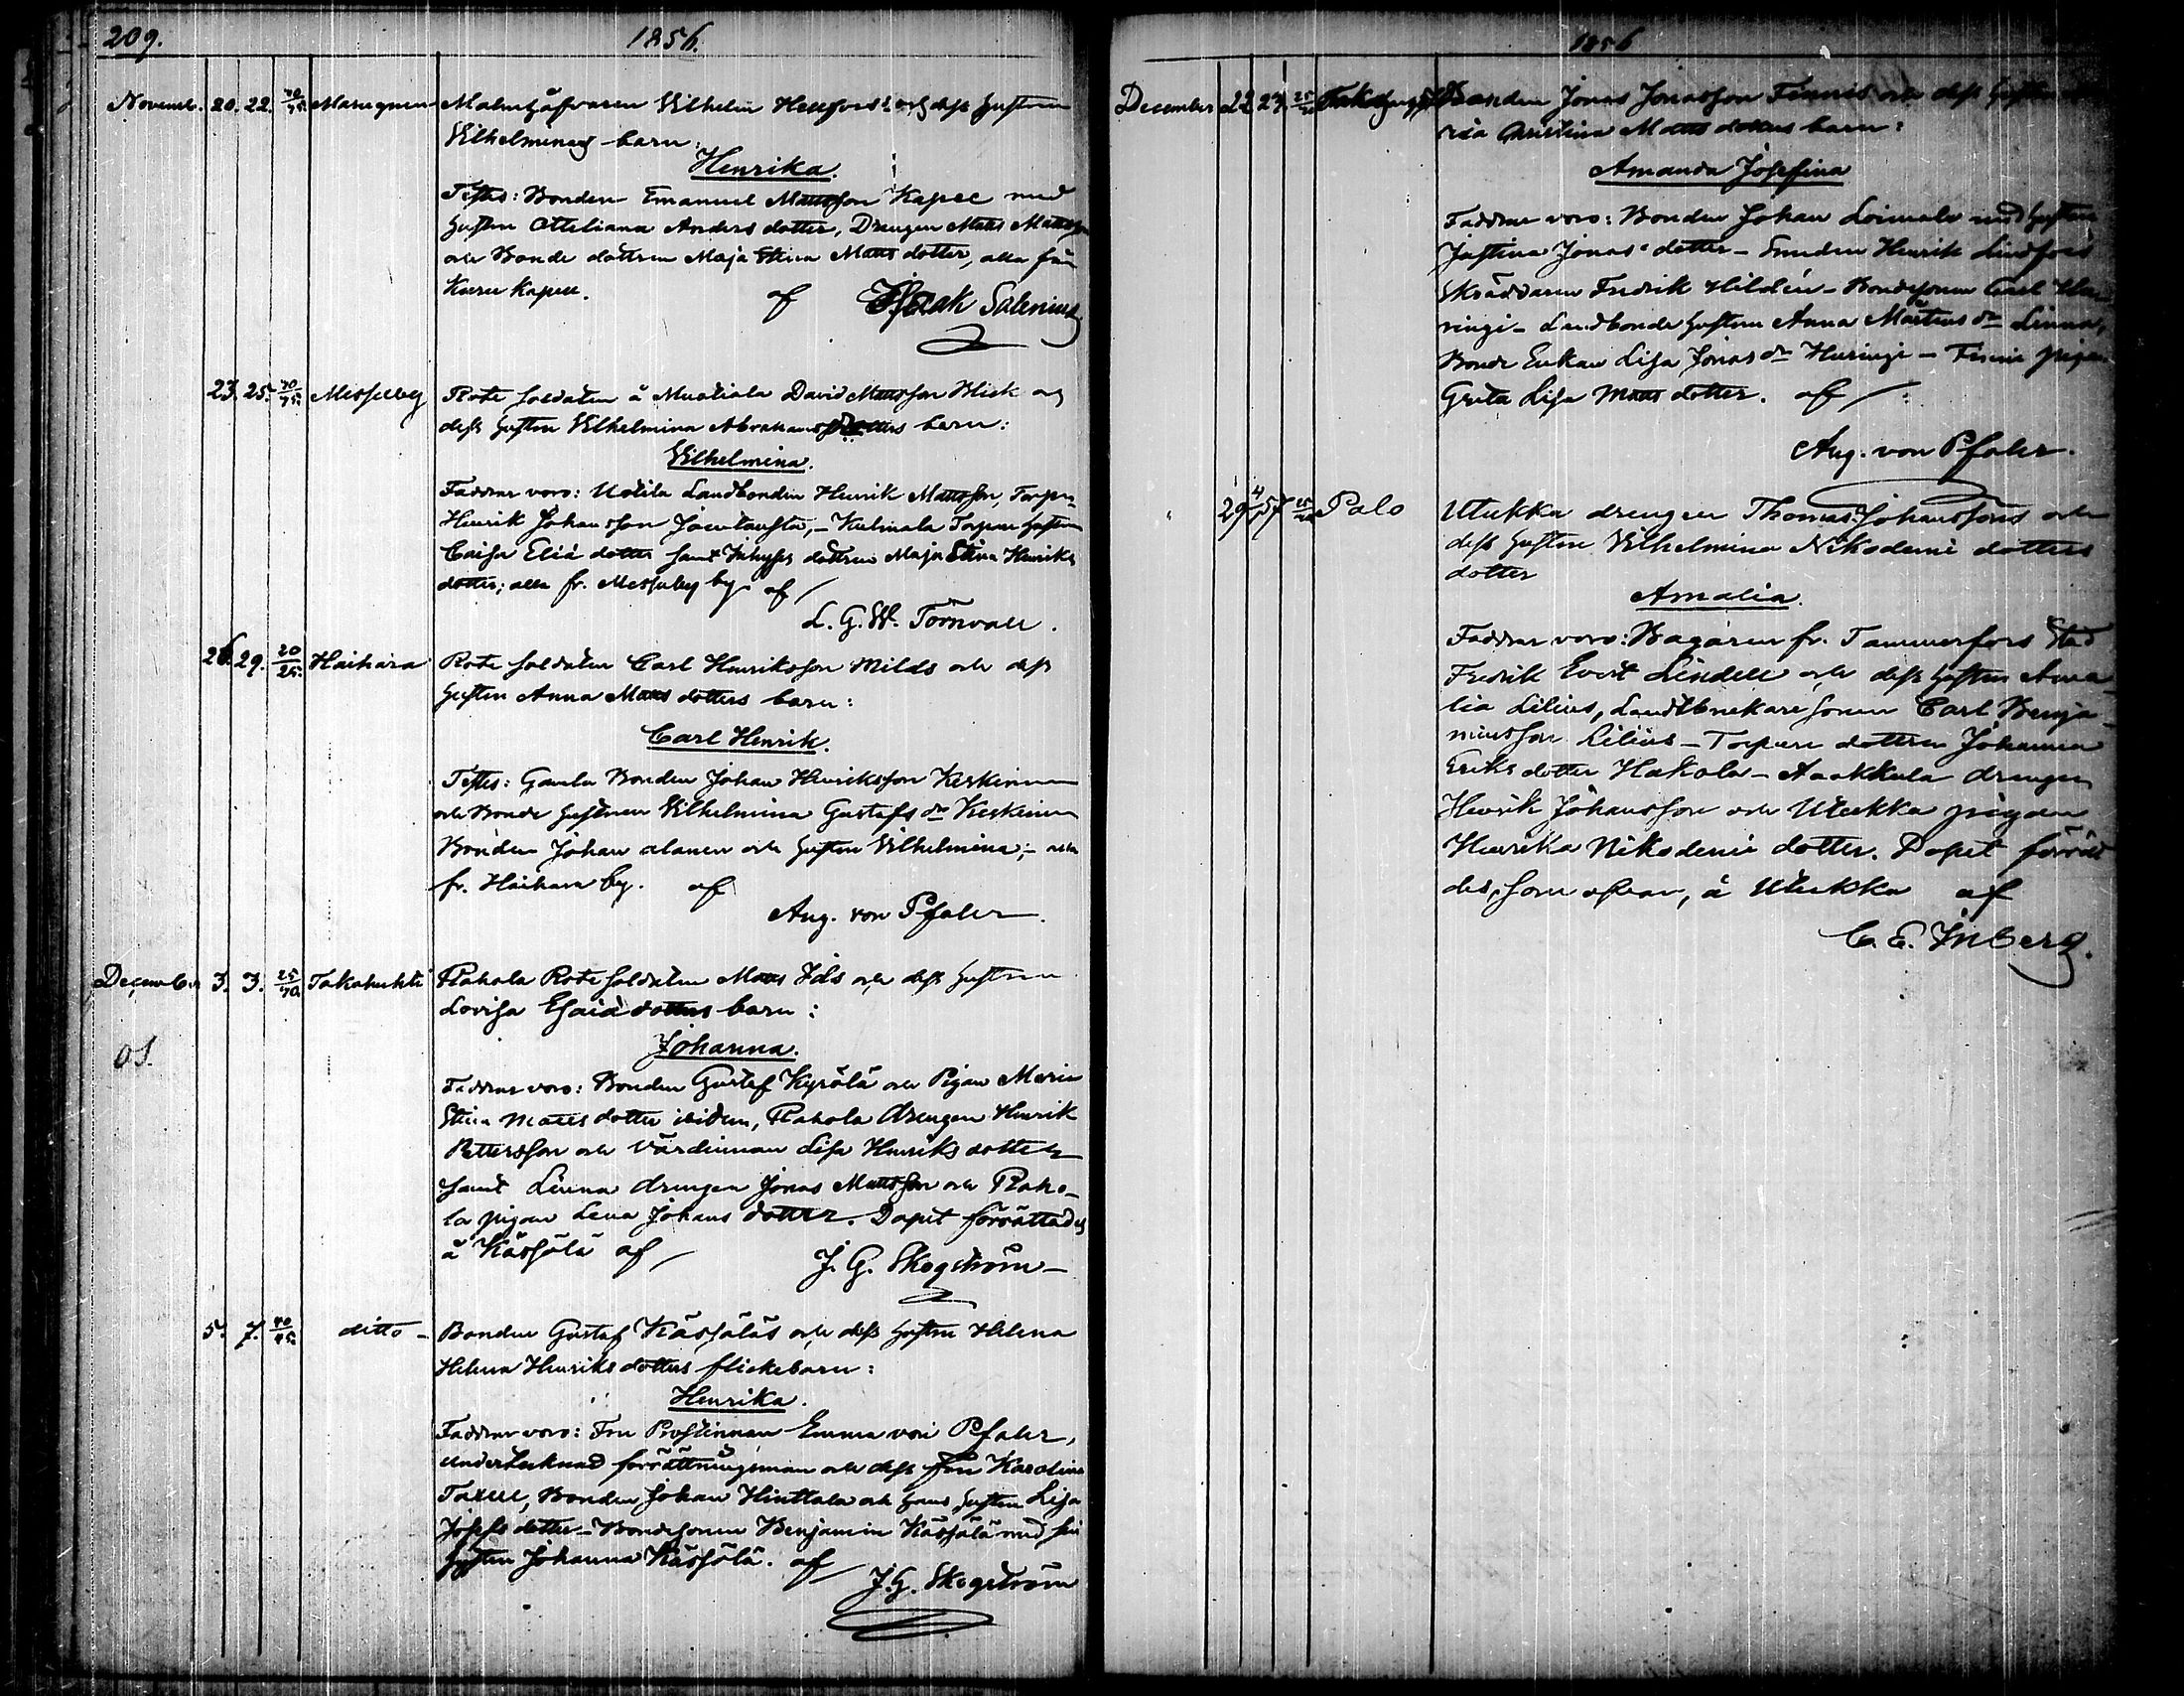 209. 1856.
Novemb. 20. 22. 40/45.
Vilhelmina barn:
Henrika.
Testes: Bonden Emanuel Mattsson Kapee med
hustrun Otteliana Anders dotter, Drengen Matts Mattsson
och Bonde dottren Maja Stina Matts dotter, alla från
Kuru Kapell. af Isaak Salenius
23. 25. 40/45. Messuby Rote soldaten å Muotiala David Mattsson Blick och
dess hustru Vilhelmina Abrahams dotters barn:
Vilhelmina.
Faddrar voro: Uotila Landbonden Henrik Mattsson, Torpn
Henrik Johansson
Caisa Eliæ dotter samt dottren Maja Stina Henriks
dotter; alla fr. Messuby by af
L. G. W. Törnvall.
26. 29. 20/25. Haihara Rote soldaten Carl Henriksson Milds och dess
hustru Anna Matts dotters barn:
Carl Henrik.
Testes: Gamla Bonden Johan Henriksson Keskinen
och Bonde hustrun Vilhelmina Gustafs dr Keskinen
Bonden Johan alanen och hustrun Vilhelmina; alla
fr. Haihara by. af
Aug. von Pfaler.
December 3. 3. 25/30. Takahuhti Rahola Rote soldaten Matts Ids och dess hustru
Lovisa Esaiæ dotters barn:
Johanna.
Faddrar voro: Bonden Gustaf Kyrölä och Pigan Maria
Stina Matts dotter ibidem, Rahola drengen Henrik
Pettersson och värdinnan Lisa Henriks dotter
samt Linna drengen Jonas Mattsson och Raho-
la pigan Lena Johans dotter. Dopet förrättades
å Kässölä af J. G. Skogström
5. 7. 40/45. ditto Bonden Gustaf Kässöläs och dess hustru Helena
Helena Henriks dotters flickebarn:
Henrika.
Faddrar voro: Fru Prostinnan Emma von Pfaler,
undertecknad förrättningsman och dess fru Karolina
Taxell, Bonden Johan Hinttala och hans hustru Lisa
Josefs dotter - Bondesonen Benjamin Kässölä med sin
hustru Johanna Kässölä. af
J. G. Skogström
1856
December 22 27 Bonden Jonas Jonasson Finnis och dess hustru
Christina Matts dotters barn:
Amanda Josefina
Faddrar voro: Bonden Johan Loimala med hustrun
Justina Jonas dotter - Smeden Henrik Lindfors
Skräddaren Fredrik Hildén - Bondesonen Carl Hu-
ringi - Landbonde hustrun Anna Mårtens dr Linna,
Bonde Enkan Lisa Jonas dr Huringi - Finni pigan
Greta Lisa Matts dotter. af
Aug. von Pfaler.
29 4/1 57 Palo Ulukka drengen Thomas Johanssons och
dess hustru Vilhelmina Nikodemi dotters
dotter
Amalia.
Faddrar voro: Bagaren fr. Tammerfors Stad
Fredrik Evert Lindell och dess hustru Ama-
lia Lilius, Landtbrukare sonen Carl Benja-
minsson Lilius - Torpare dottren Johanna
Eriks dotter Hakola - Aakkula drengen
Henrik Johansson och Ulukka pigan
Henrika Nikodemi dotter. Dopet förrätta-
des, som ofvan, å Ulukka af
C. E. Inberg.